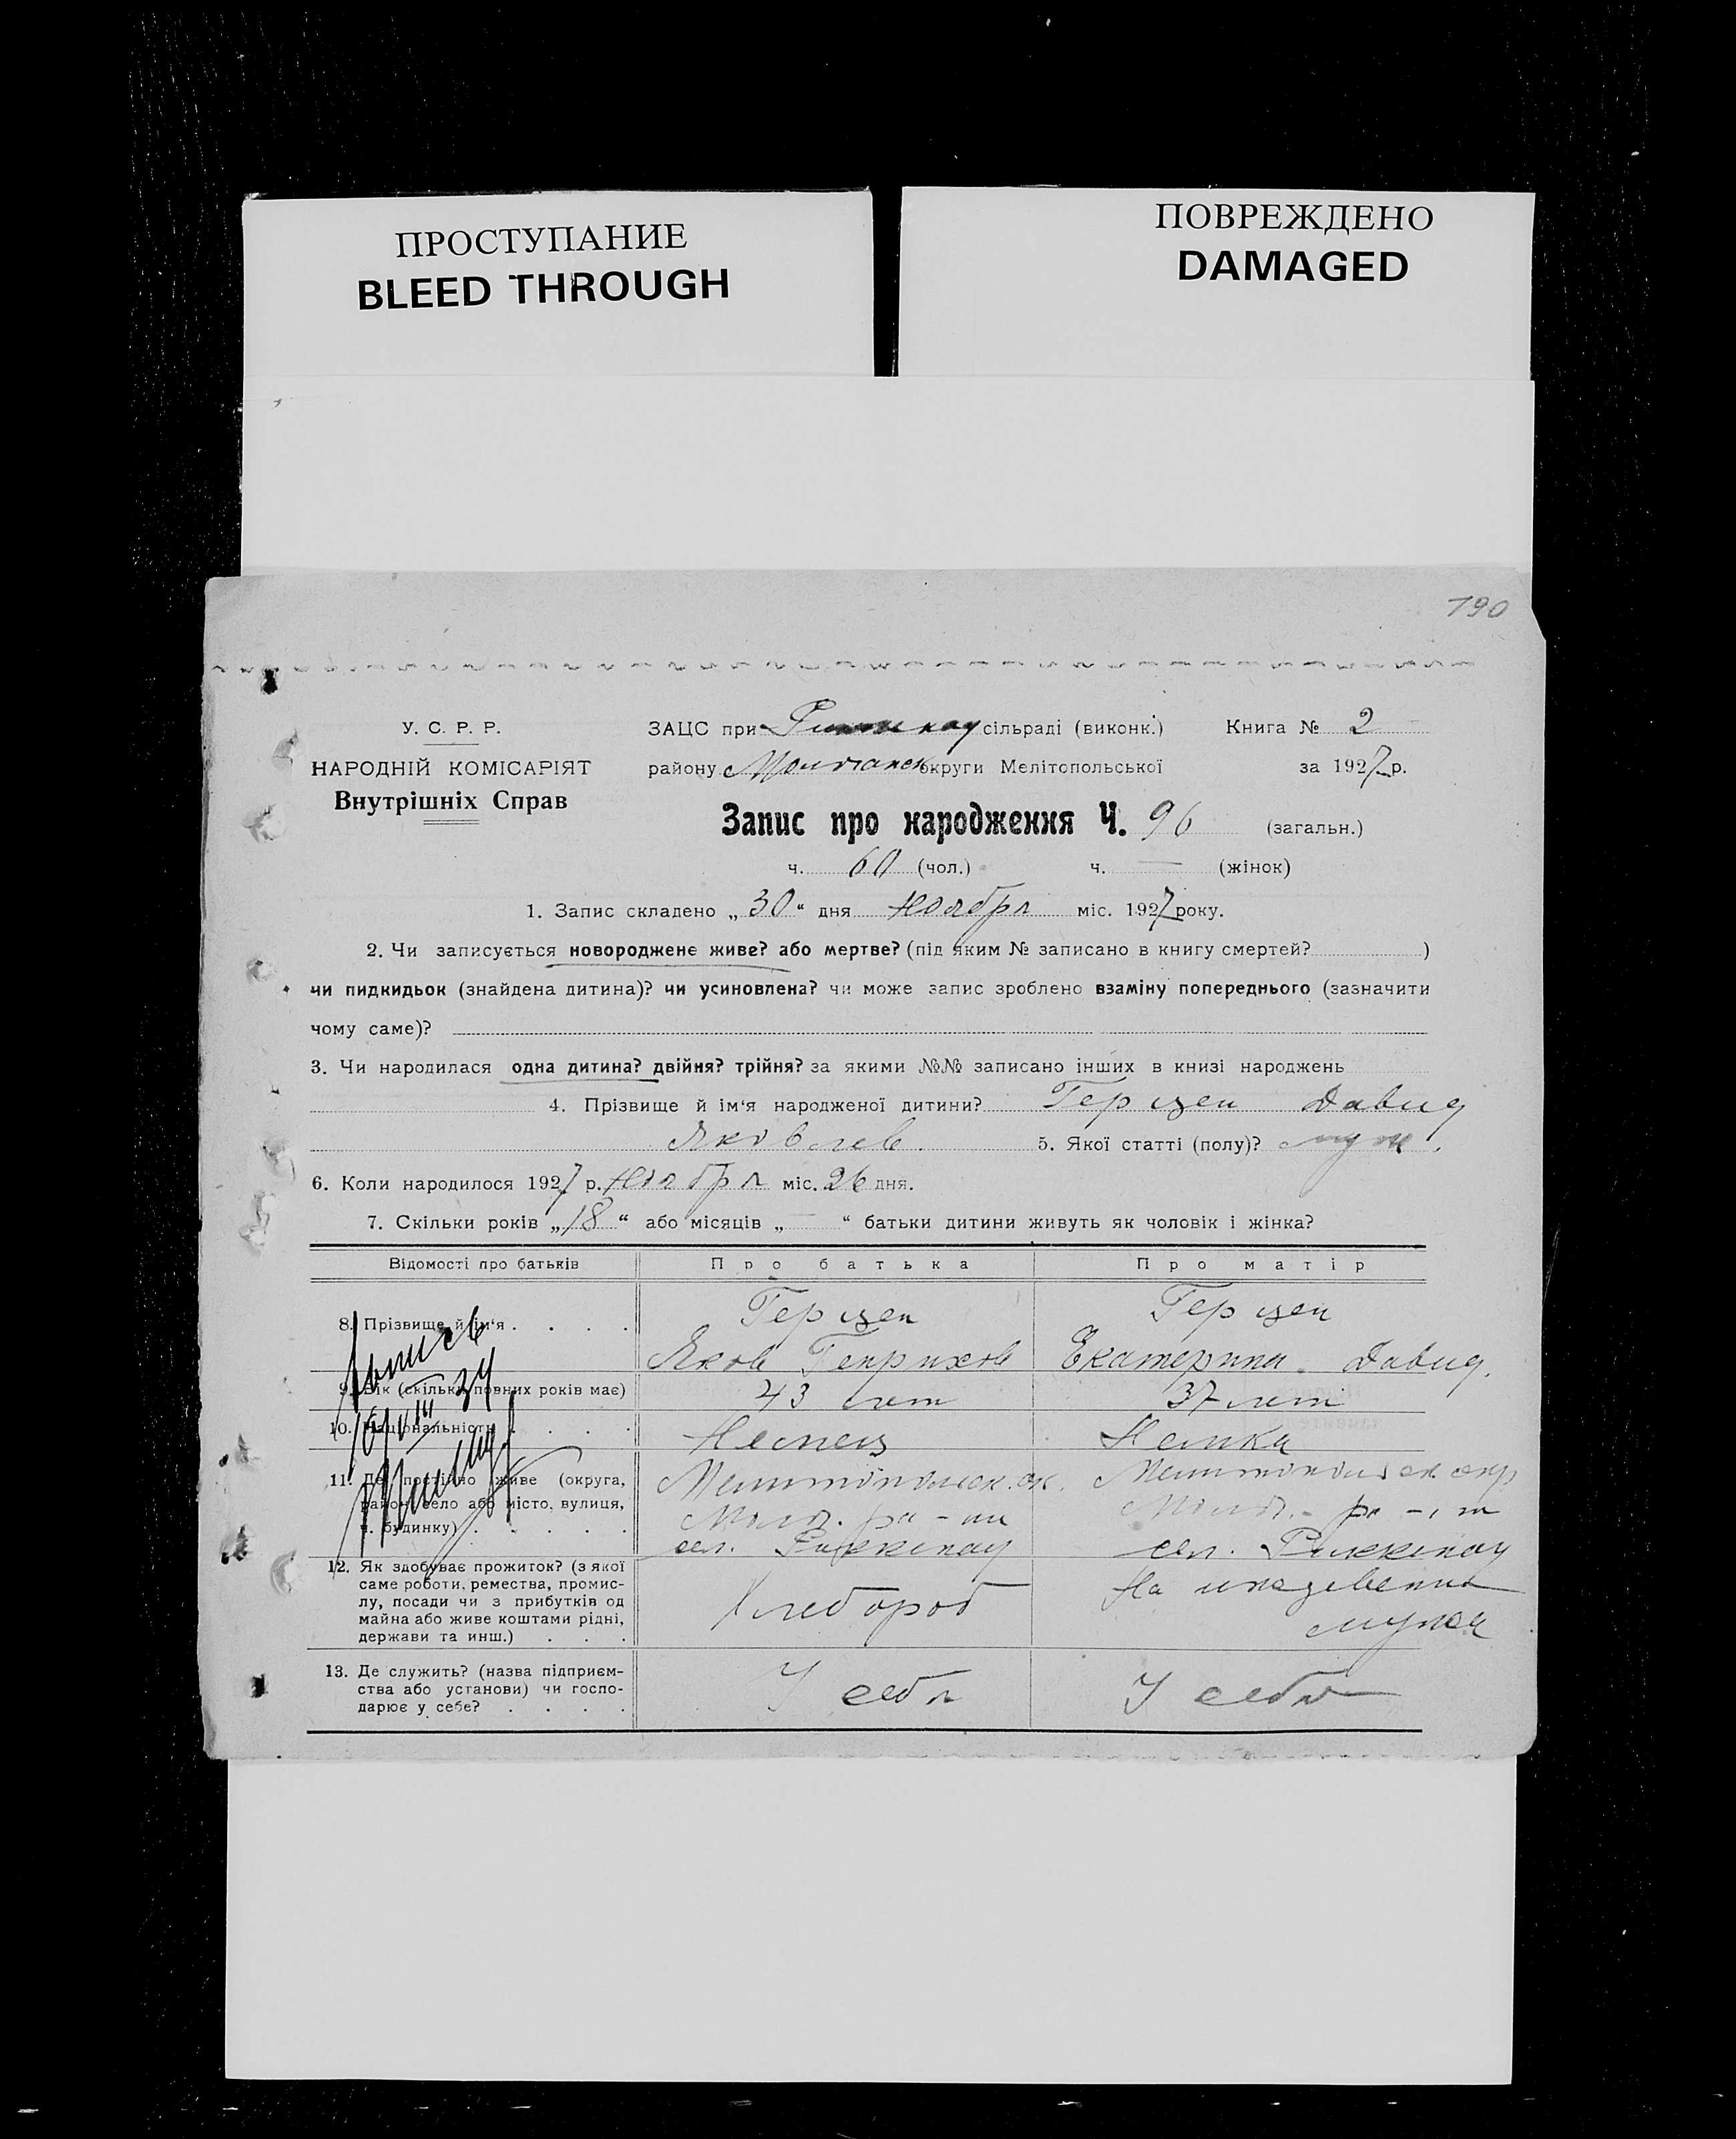 ПРОСТУПАНИЕ
BLEED THROUGH
ПОВРЕЖДЕНО
DAMAGED
790
У. С. Р. Р.
НАРОДНІЙ КОМІСАРІЯТ
Внутрішніх Справ
ЗАЦС при сільраді (виконк.) Книга № 2
району Молочанск округи Мелітопольської за 1927 р.
Запис про народження Ч. 96 (загальн.)
ч. 60 (чол.) ч. — (жінок)
1. Запис складено „30“ дня Ноября міс. 1927 року.
2. Чи записується новороджене живе? або мертве? (під яким № записано в книгу смертей? )
чи пидкидьок (знайдена дитина)? чи усиновлена? чи може запис зроблено взаміну попереднього (зазначити
чому саме)?
3. Чи народилася одна дитина? двійня? трійня? за якими №№ записано інших в книзі народжень
4. Прізвище й ім‘я народженої дитини? Герцен Давид
Яковлев. 5. Якої статті (полу)? муж.
6. Коли народилося 1927 р. Ноября міс. 26 дня.
7. Скільки років „18“ або місяців „—“ батьки дитини живуть як чоловік і жінка?
Відомості про батьків Про батька Про матір
8. Прізвище й ім‘я . . . . . Герцен Герцен
Яков Генрихов Екатерина Давид.
9. Вік (скільки повних років має) 43 лет 37 лет
10. Національність . . . . Немец Немка
11. Де постійно живе (округа, район, село або місто, вулиця, ч. будинку) . . . . .
Мелитопольск. ок. Мелитопольск окр
Молоч. ра-на Молоч. ра-на
сел. Рикенау сел. Рикенау
12. Як здобуває прожиток? (з якої саме роботи, ремества, промислу, посади чи з прибутків од майна або живе коштами рідні, держави та инш.) . . .
Хлебороб На иждевении
мужа
13. Де служить? (назва підприємства або установи) чи господарює у себе? . . . .
У себя У себя